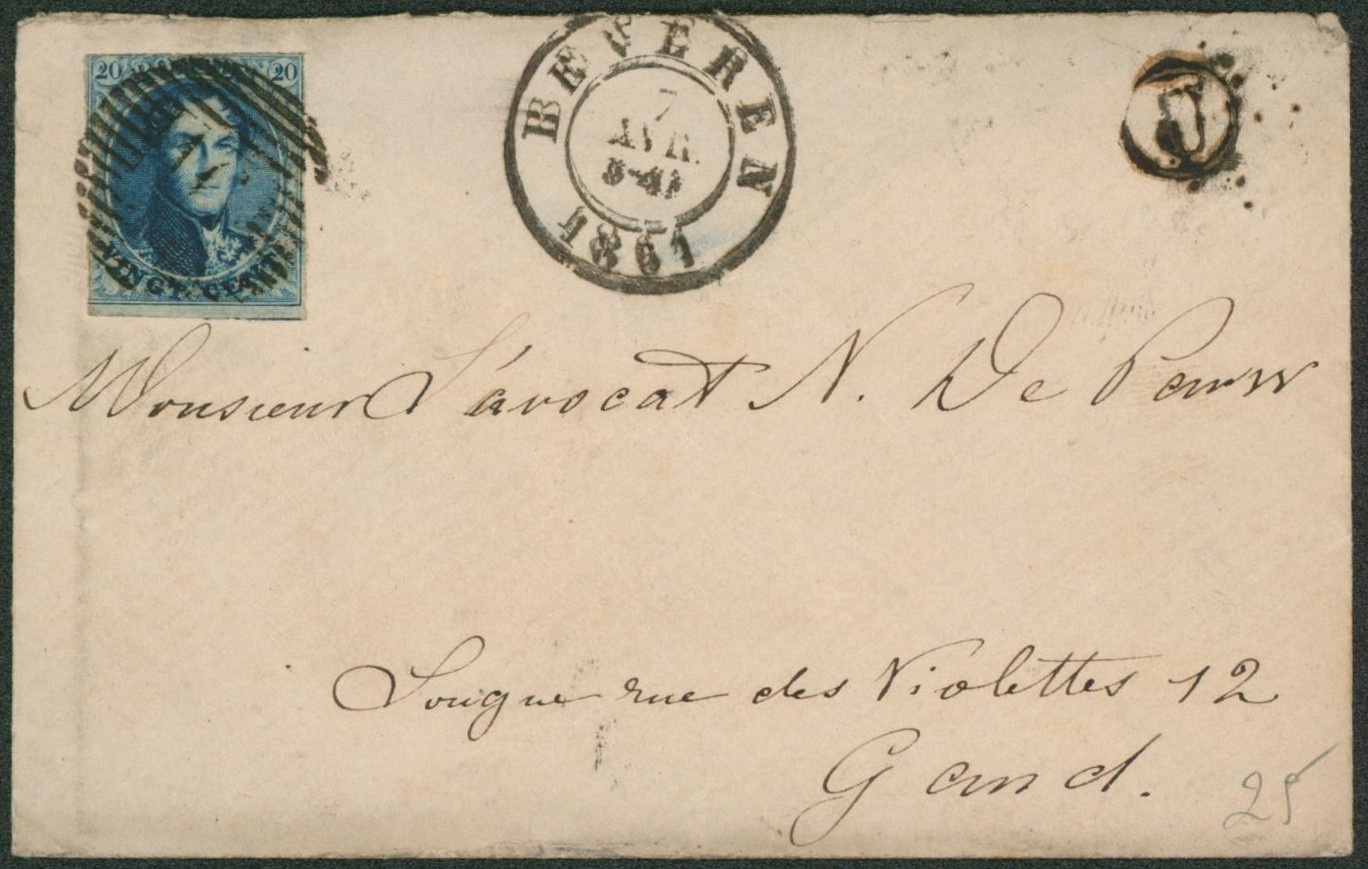 20 20
VINGT CENTS
BEVEREN
7
AVR.
1861
J
Monsieur L'avocat N. De Pauw
Longue rue des Violettes 12
Gand.
25